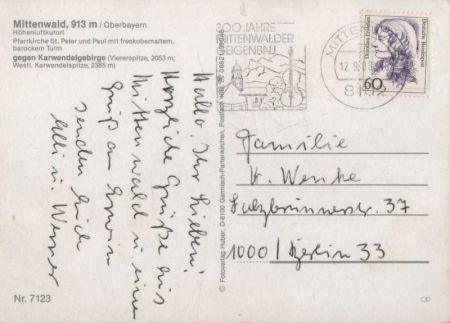 Mittenwald, 913 m / Oberbayern
Höhenluftkurort
Pfarrkirche St. Peter und Paul mit freskobemaltem,
barockem Turm
gegen Karwendelgebirge (Viererspitze, 2053 m;
Westl. Karwendelspitze, 2385 m)
Hallo, Ihr Lieben!
Herzliche Grüße aus
Mittenwald u. eine
Gruß an Erwin
senden Euch
Elli u. Werner
Nr. 7123
© Fotoverlag Huber, D-8100 Garmisch-Partenkirchen, Postfach
300 JAHRE
MITTENWALDER
GEIGENBAU
MITTEN
12.9
Deutsche Bundespost
60
Familie
H. Wenke
Salzbrunnerstr. 37
1000 / Berlin 33